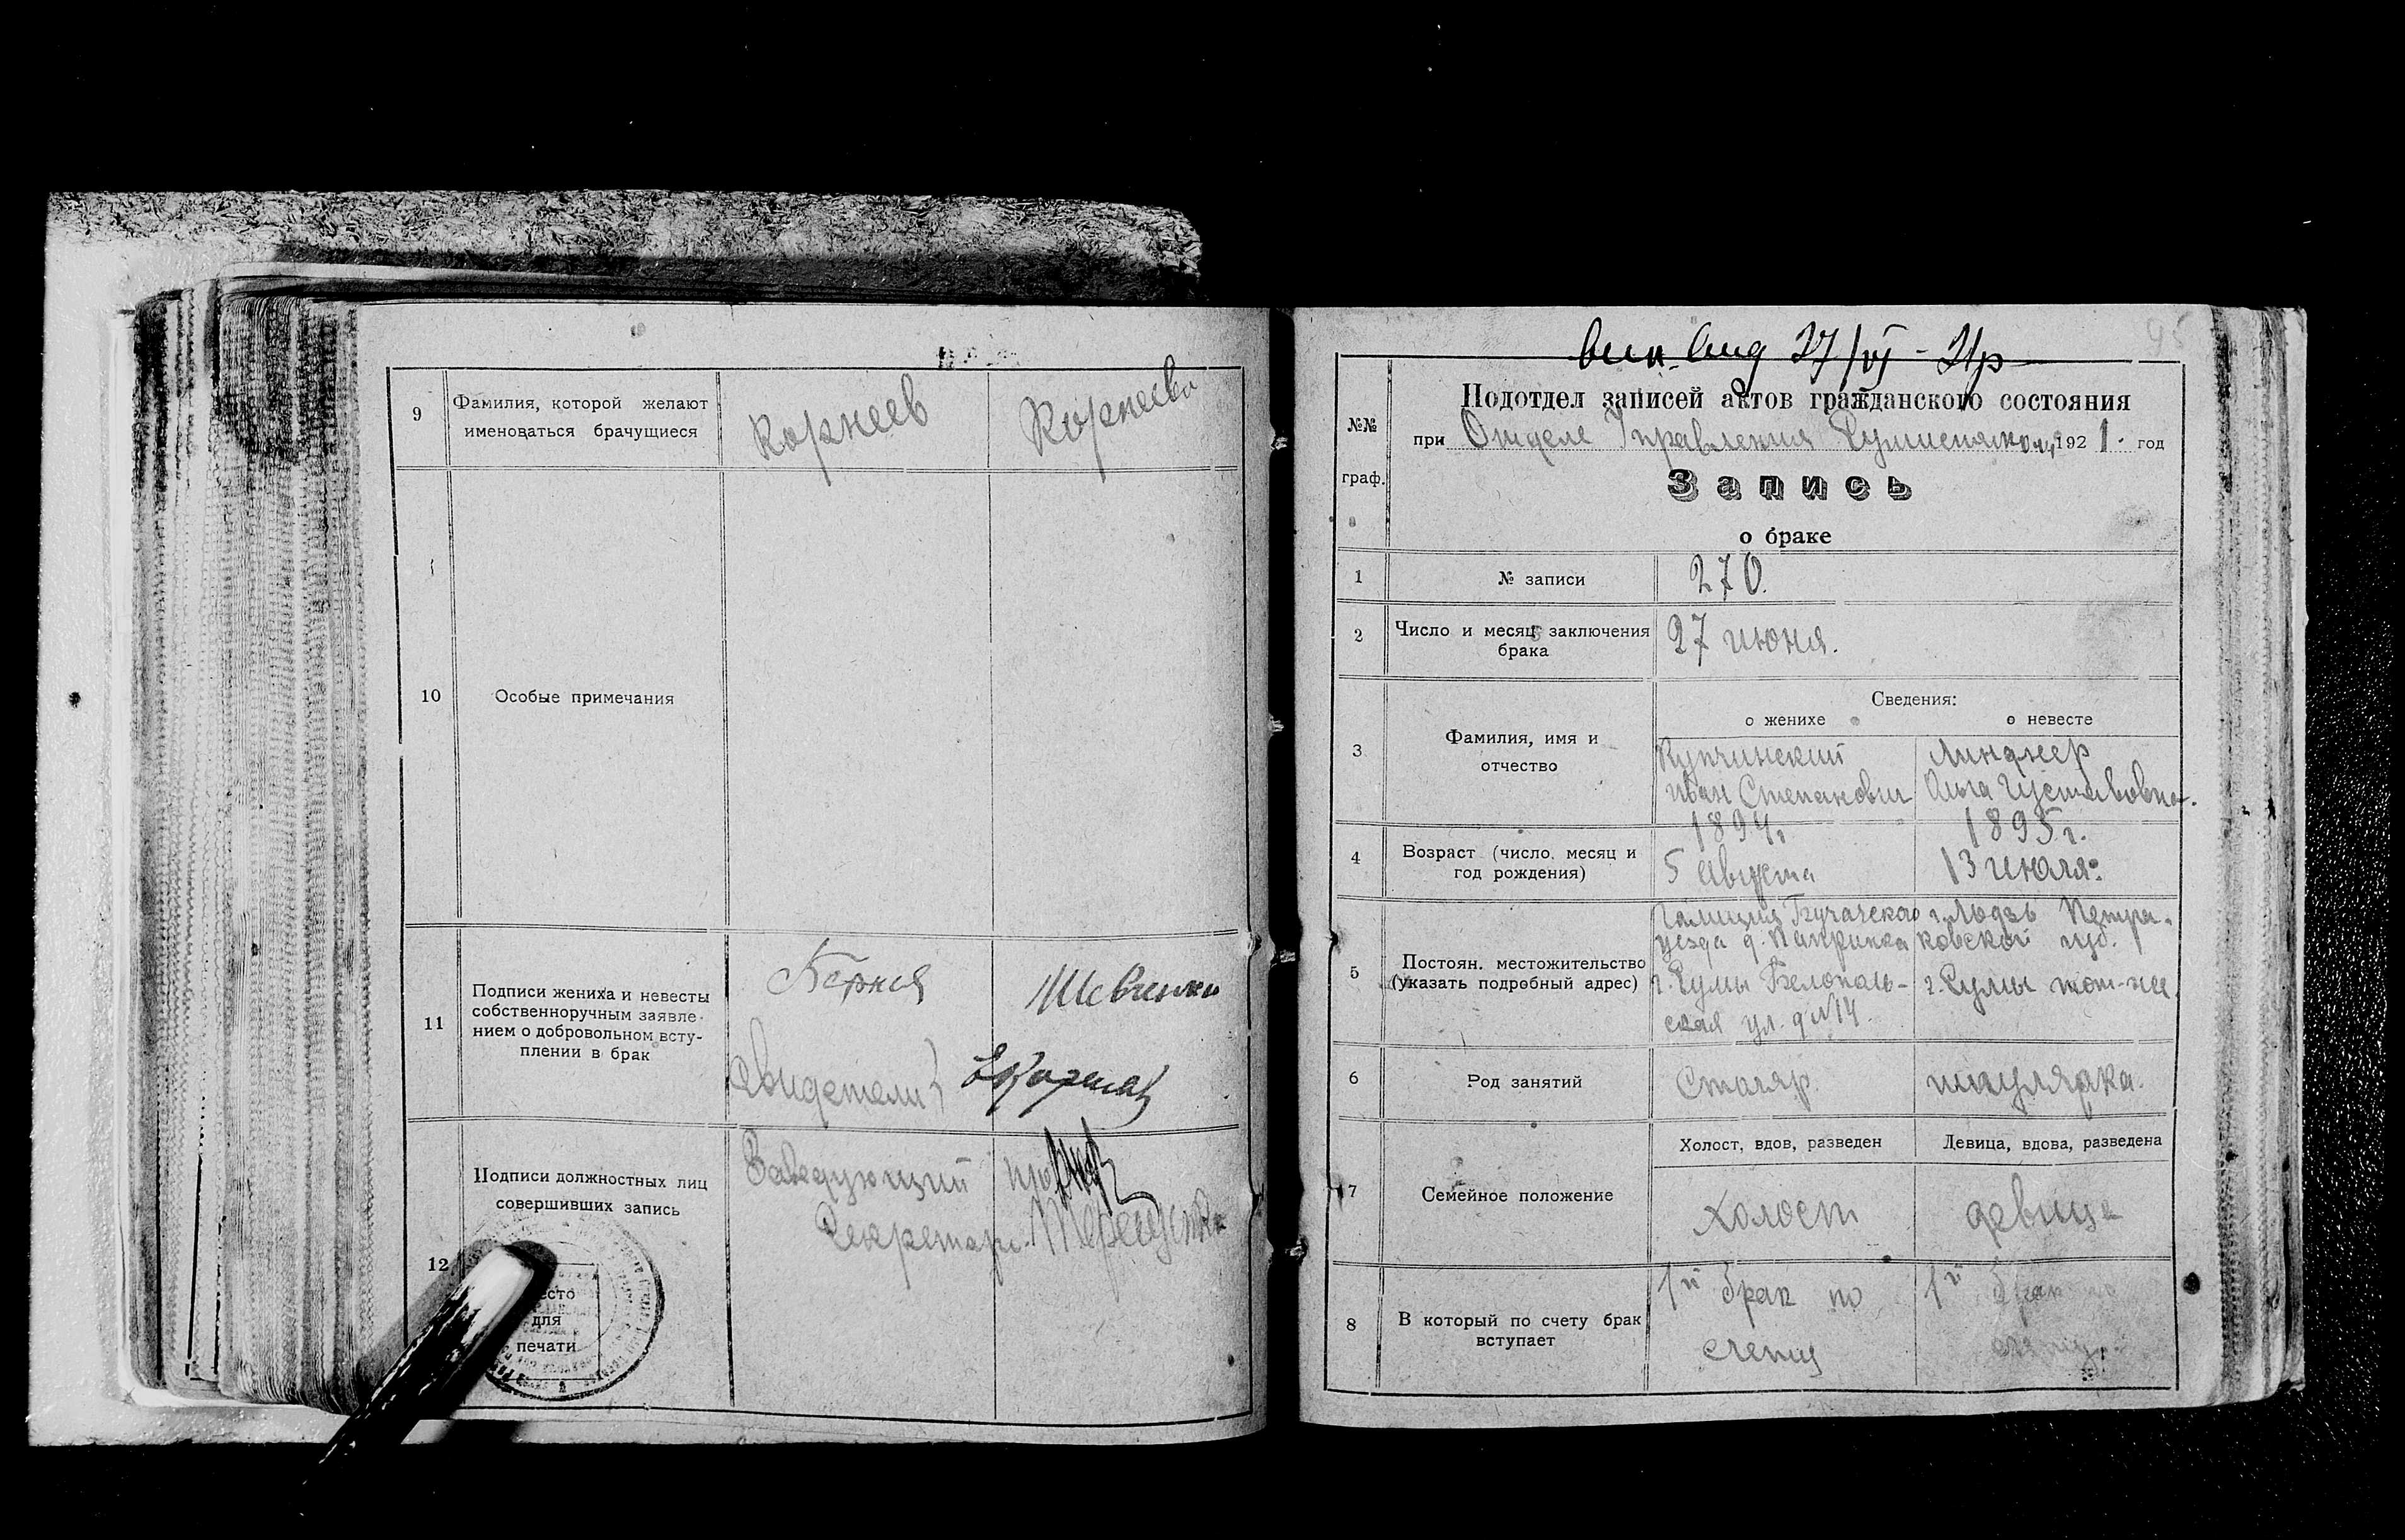 9
Фамилия, которой желают
именоваться брачущиеся
Корнеев
Корнеева
10
Особые примечания
11
Подписи жениха и невесты
собственноручным заявле-
нием о добровольном всту-
плении в брак
Шевченко
Свидетели
12
Подписи должностных лиц
совершивших запись
Заведующий
Секретарь
место
для
печати
95
27/VI - 21р
№№
граф.
Подотдел записей актов гражданского состояния
при Отделе Управления 1921. год
Запись
о браке
1
№ записи
270.
2
Число и месяц заключения
брака
27 июня.
3
Фамилия, имя и
отчество
Сведения:
о женихе
о невесте
Купчинский
Иван Степанович
Линднер
Ольга Густавовна.
4
Возраст (число, месяц и
год рождения)
1894г.
5 Августа
1895г.
13 июля.
5
Постоян. местожительство
(указать подробный адрес)
Галиция Бучаческаго
уезда д.
г. Сумы Белополь-
ская ул. д № 14.
г. Лодзь Петра-
ковской губ.
г. Сумы том-же
6
Род занятий
Столяр.
7
Семейное положение
Холост, вдов, разведен
Девица, вдова, разведена
холост
девица
8
В который по счету брак
вступает
1й брак по
счету
1й брак по
счету.